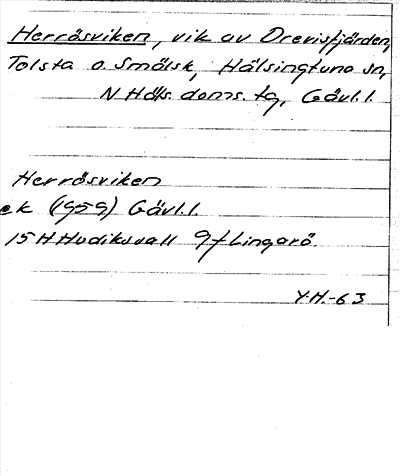 Herråsviken, vik av Drevisfjärden,
Tolsta o. Smälsk, Hälsingtuna sn,
N Häls. doms. tg, Gävl.l.
Herråsviken
ek (1959) Gävl.l.
15 H Hudiksvall 9f Lingarö
Y.H.-63